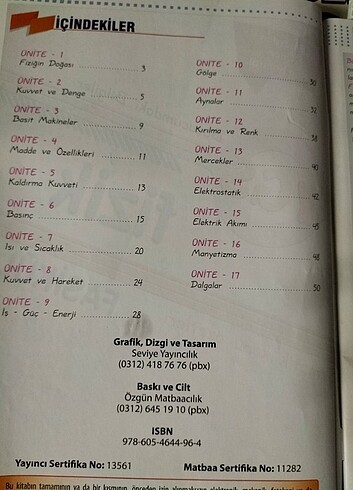 İÇİNDEKİLER
ÜNİTE - 1
Fiziğin Doğası 3
ÜNİTE - 2
Kuvvet ve Denge 5
ÜNİTE - 3
Basit Makineler 9
ÜNİTE - 4
Madde ve Özellikleri 11
ÜNİTE - 5
Kaldırma Kuvveti 13
ÜNİTE - 6
Basınç 15
ÜNİTE - 7
Isı ve Sıcaklık 20
ÜNİTE - 8
Kuvvet ve Hareket 24
ÜNİTE - 9
İş - Güç - Enerji 28
ÜNİTE - 10
Gölge 30
ÜNİTE - 11
Aynalar 32
ÜNİTE - 12
Kırılma ve Renk 38
ÜNİTE - 13
Mercekler 40
ÜNİTE - 14
Elektrostatik 42
ÜNİTE - 15
Elektrik Akımı 45
ÜNİTE - 16
Manyetizma 48
ÜNİTE - 17
Dalgalar 50
Grafik, Dizgi ve Tasarım
Seviye Yayıncılık
(0312) 418 76 76 (pbx)
Baskı ve Cilt
Özgün Matbaacılık
(0312) 645 19 10 (pbx)
ISBN
978-605-4644-96-4
Yayıncı Sertifika No: 13561 Matbaa Sertifika No: 11282
Bu kitabın tamamının ya da bir kısmının, önceden izin alınmaksızın